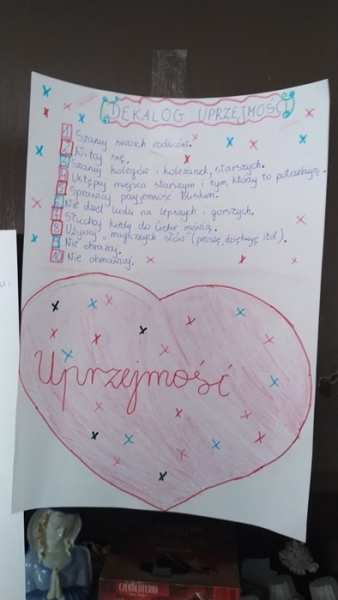 DEKALOG UPRZEJMOŚCI
1 Szanuj swoich rodziców.
2 Witaj się.
3 Szanuj kolegów i koleżanek, starszych.
4 Ustępuj miejsca starszym i tym, którzy to potrzebują.
5 Sprawiaj przyjemność bliskim.
6 Nie dziel ludzi na lepszych i gorszych.
7 Słuchaj kiedy do Ciebie mówią.
8 Używaj "magicznych słów" (proszę, dziękuję itd).
9 Nie obrażaj.
10 Nie obmawiaj.
Uprzejmość